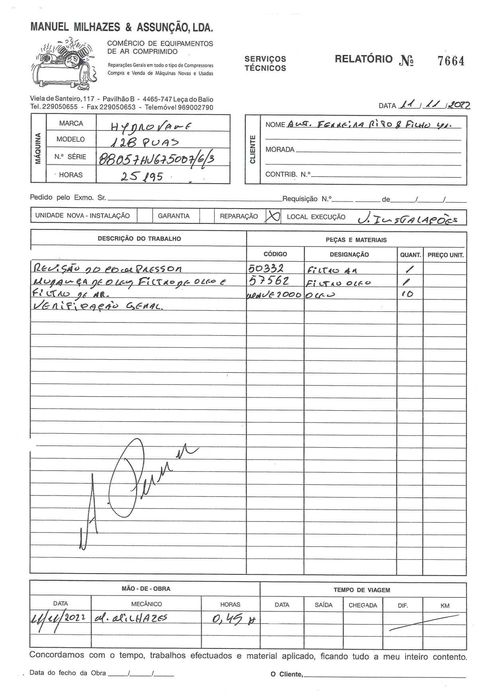 MANUEL MILHAZES & ASSUNÇÃO, LDA.
COMÉRCIO DE EQUIPAMENTOS
DE AR COMPRIMIDO
Reparações Gerais em todo o tipo de Compressores
Compra e Venda de Máquinas Novas e Usadas
SERVIÇOS
TÉCNICOS
RELATÓRIO Nº 7664
Viela de Santeiro, 117 - Pavilhão B - 4465-747 Leça do Balio
Tel. 229050655 - Fax 229050653 - Telemóvel 969002790
DATA 11 / 11 / 2022
MÁQUINA
MARCA HYDROVANE
MODELO 128 PUAS
N.º SÉRIE
HORAS 25195
CLIENTE
NOME Ant. Ferreira & Filho
MORADA
CONTRIB. N.º
Pedido pelo Exmo. Sr. Requisição N.º de / /
UNIDADE NOVA - INSTALAÇÃO GARANTIA REPARAÇÃO X LOCAL EXECUÇÃO V. INSTALAÇÕES
DESCRIÇÃO DO TRABALHO PEÇAS E MATERIAIS
CÓDIGO DESIGNAÇÃO QUANT. PREÇO UNIT.
REVISÃO DO COMPRESSOR 50332 FILTRO AR 1
MUDANÇA DE OLEO, FILTRO DE OLEO E 57562 FILTRO OLEO 1
FILTRO DE AR. 2000 OLEO 10
VERIFICAÇÃO GERAL.
MÃO - DE - OBRA TEMPO DE VIAGEM
DATA MECÂNICO HORAS DATA SAÍDA CHEGADA DIF. KM
11/11/2022 M. MILHAZES 0,45 H
Concordamos com o tempo, trabalhos efectuados e material aplicado, ficando tudo a meu inteiro contento.
Data do fecho da Obra / / O Cliente,